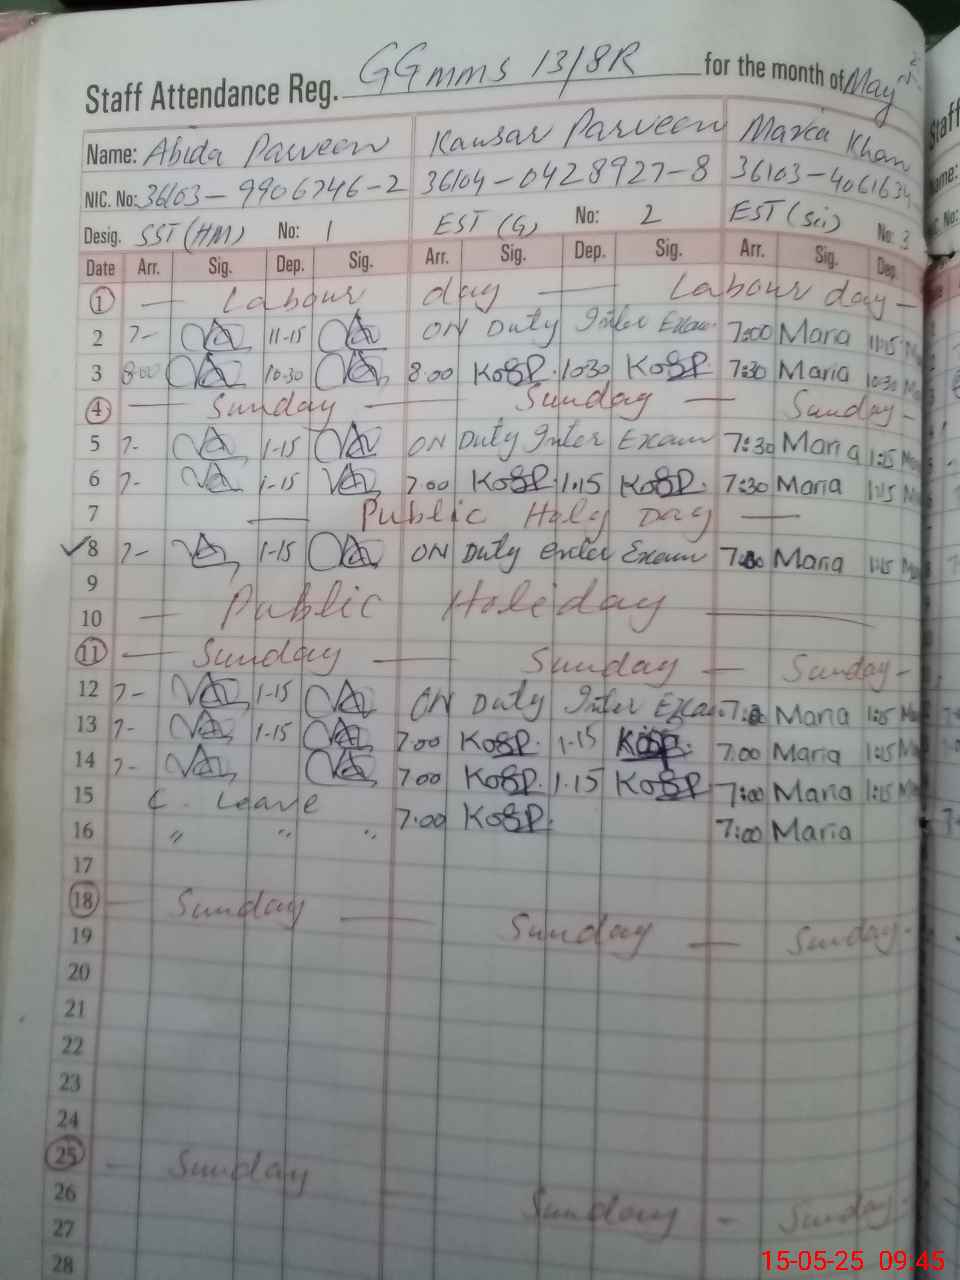 Staff Attendance Reg. GGmms 13/8R for the month of May
Name: Abida Parveen Kausar Parveen Maria Khan
NIC. No: 36103-9906746-2 36104-0428927-8 36103-4061634
Desig. SST (HM) No: 1 EST (G) No: 2 EST (Sci) No: 3
Date Arr. Sig. Dep. Sig. Arr. Sig. Dep. Sig. Arr. Sig. Dep.
1 — Labour day — Labour day —
2 7- 11-15 ON Duty Inter Exam 7:00 Maria 11:15
3 8:00 10-30 8.00 KoSP. 1030 KoSP 7:30 Maria 10:30
4 — Sunday — Sunday — Sunday -
5 7- 1-15 ON Duty Inter Exam 7:30 Maria 1:15
6 7- 1-15 7.00 KoSP. 1.15 KoSP. 7:30 Maria 1:15
7 — Public Holy Day —
8 7- 1-15 ON Duty Exam Maria 1:15
9
10 — Public Holiday —
11 — Sunday — Sunday — Sunday -
12 7- 1-15 ON Duty Inter Exam Maria 1:15
13 7- 1-15 7.00 KoSP. 1-15 KoSP. 7:00 Maria 1:15
14 7- 7.00 KoSP. 1.15 KoSP 7:00 Maria 1:15
15 C. Leave 7:00 KoSP. 7:00 Maria
16 " " "
17
18 — Sunday — Sunday — Sunday -
19
20
21
22
23
24
25 — Sunday — Sunday - Sunday -
26
27
28
15-05-25 09:45